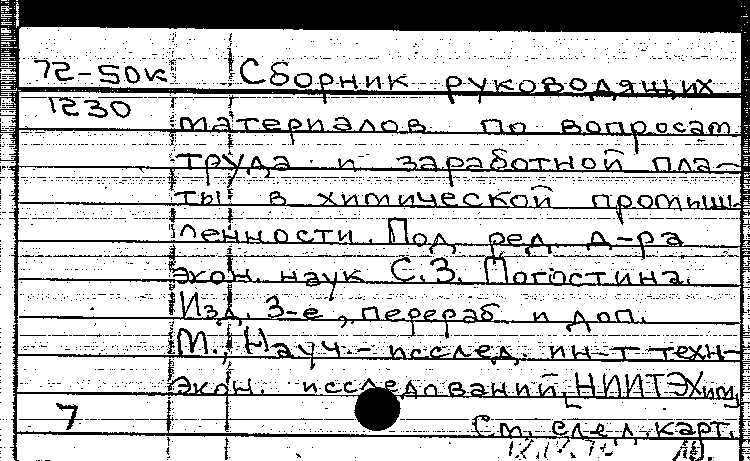 72-50к Сборник руководящих
1230
материалов по вопросам
труда и заработной пла-
ты в химической промыш-
ленности. Под ред. д-ра
экон. наук С.З. Погостина.
Изд. 3-е, перераб и доп.
М., Науч.-исслед. ин-т техн-
экон. исследований,[НИИТЭХим]
7
См. след. карт.